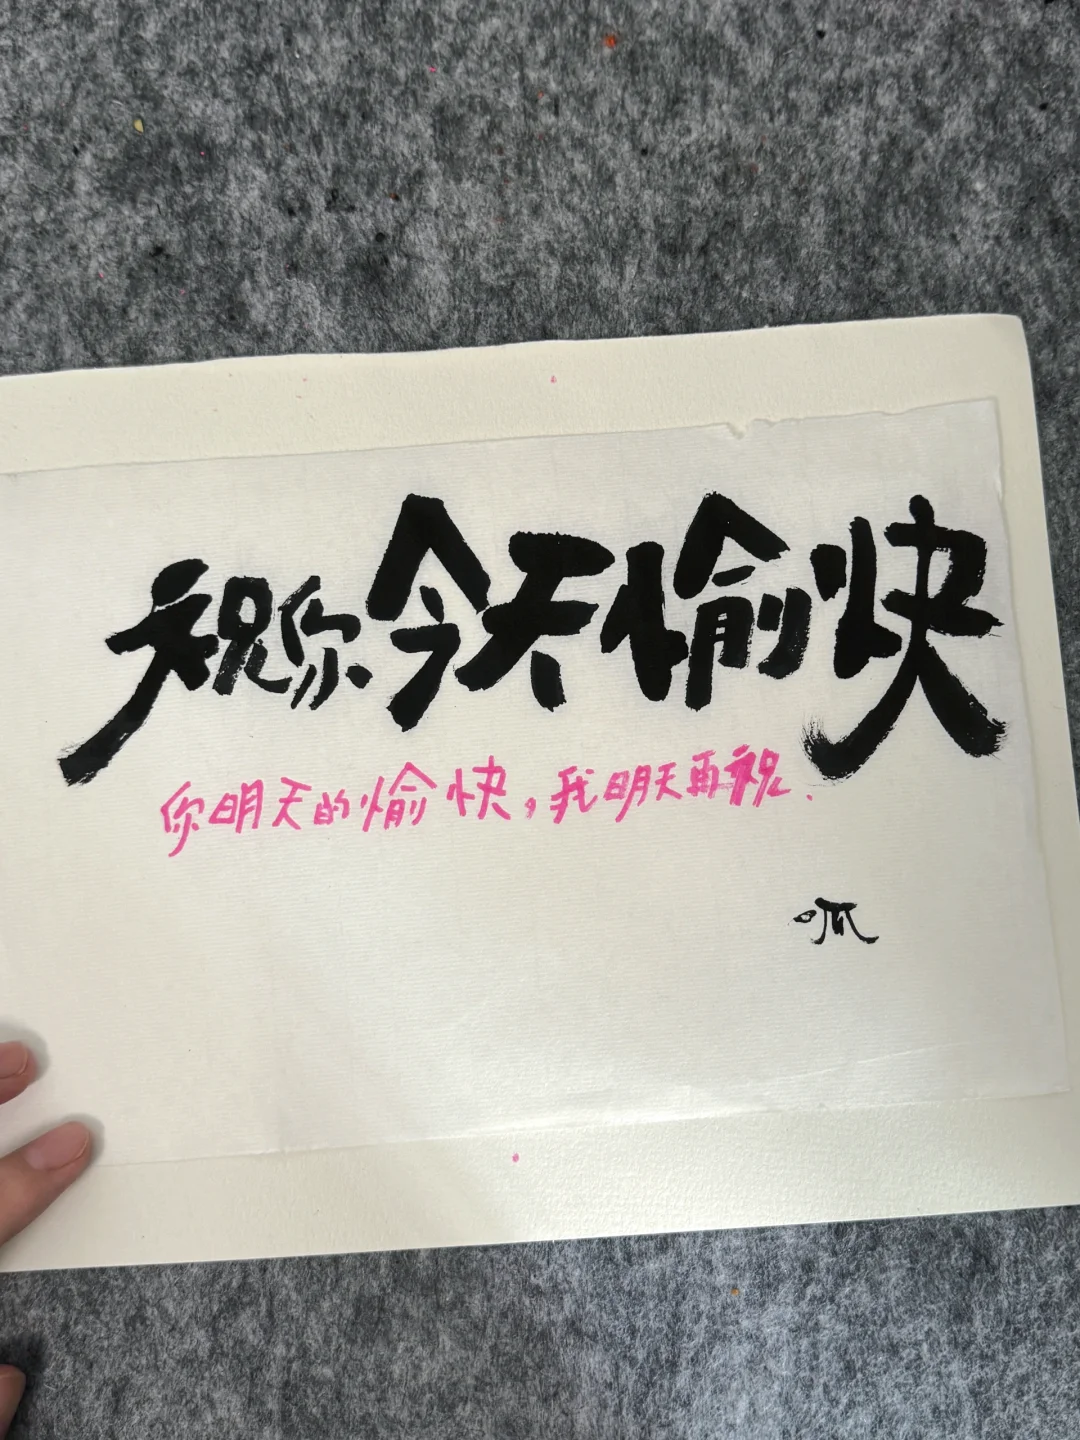 祝你今天愉快
你明天的愉快，我明天再祝.
呱